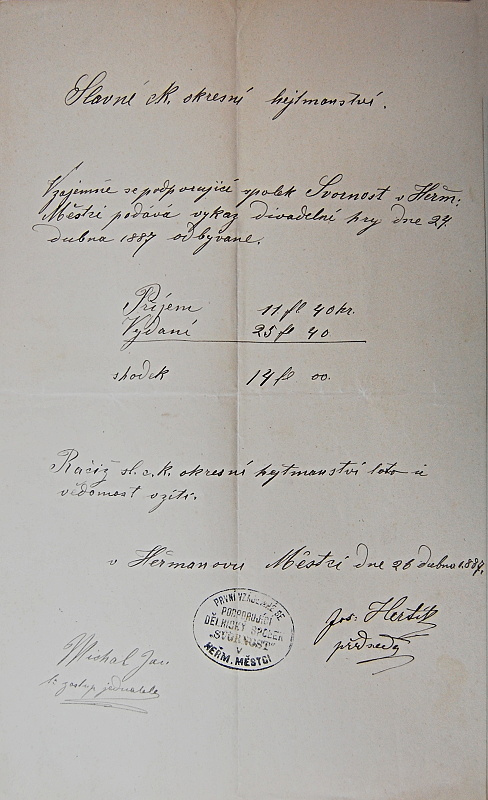 Slavné c.k. okresní hejtmanství.
Vzájemně se podporující spolek Svornost v Heřm:
Městci podává výkaz divadelní hry dne 24.
dubna 1887 odbývané.
Příjem 11 fl 40 kr.
Vydání 25 fl 40
shodek 14 fl 00.
Račiž sl. c.k. okresní hejtmanství toto u
vědomost vzíti.
v Heřmanovu Městci dne 26 dubna 1887.
PRVNÍ VZÁJEMNĚ SE
PODPORUJÍCÍ
DĚLNICKÝ SPOLEK
„SVORNOST"
V
HEŘM. MĚSTCI
Jos. Hertík
předseda
Michal Jan
zástup jednatele